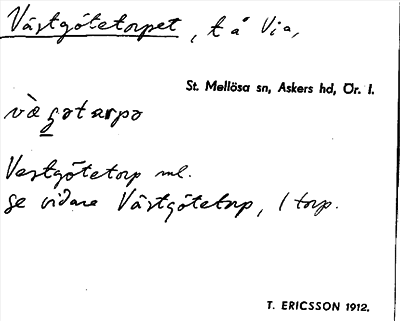 Västgötetorpet, t å Via,
St. Mellösa sn, Askers hd, Ör. l.
vàgotarpo
Vestgötetorp ml.
se vidare Västgötetorp, 1 torp.
T. ERICSSON 1912.